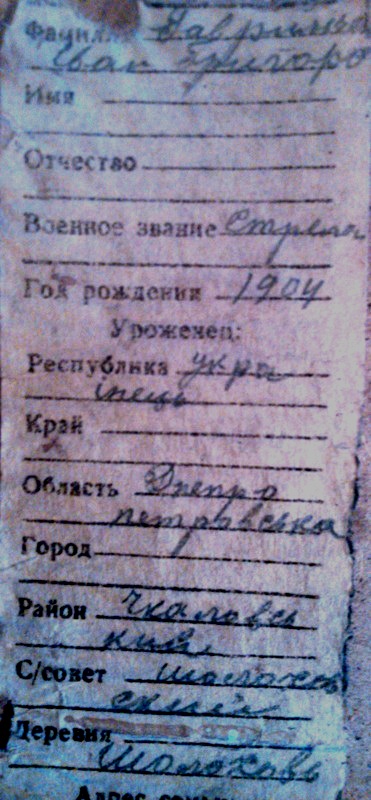 Фамилия Гаврилю
Иван Григоро
Имя
Отчество
Военное звание Стрелок
Год рождения 1904
Уроженец:
Республика укра
інець
Край
Область Днепро
петровська
Город
Район Чкаловсь
кий
С/совет Шолохов
ский
Деревня
Шолохово
Адрес семьи